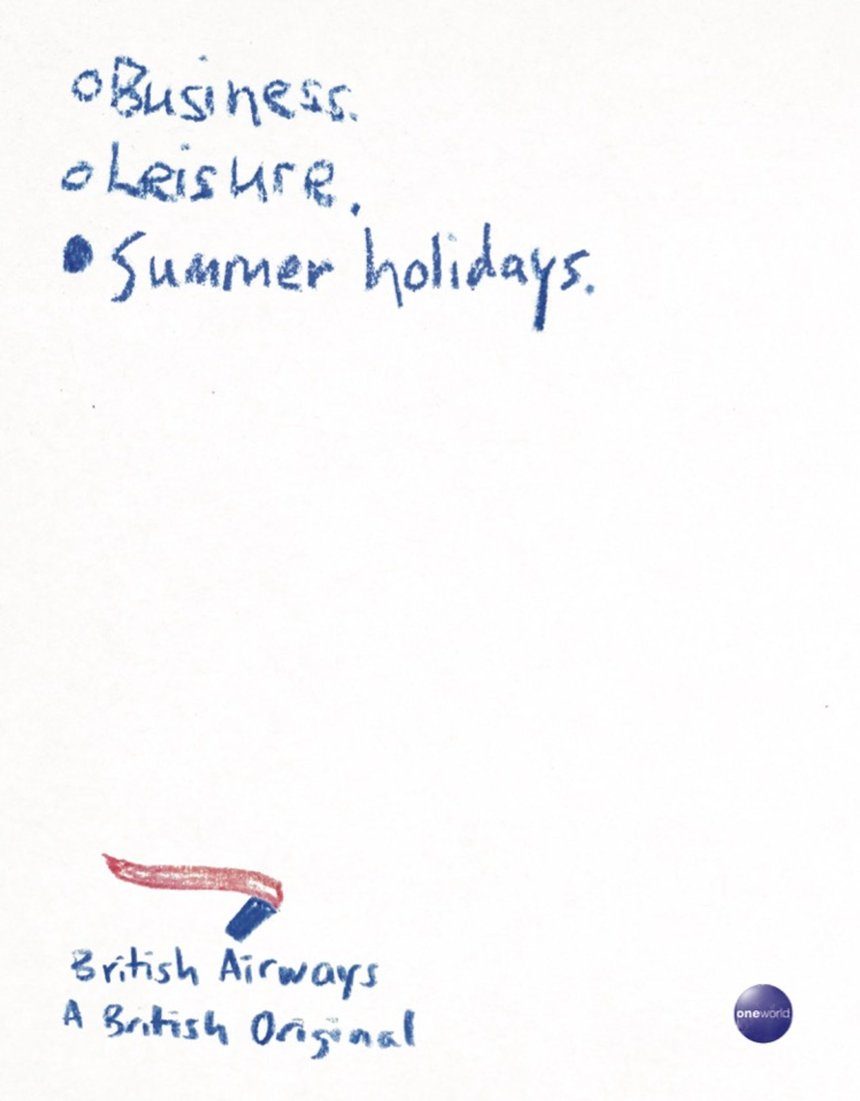 Business.
Leisure.
Summer holidays.
British Airways
A British Original
oneworld